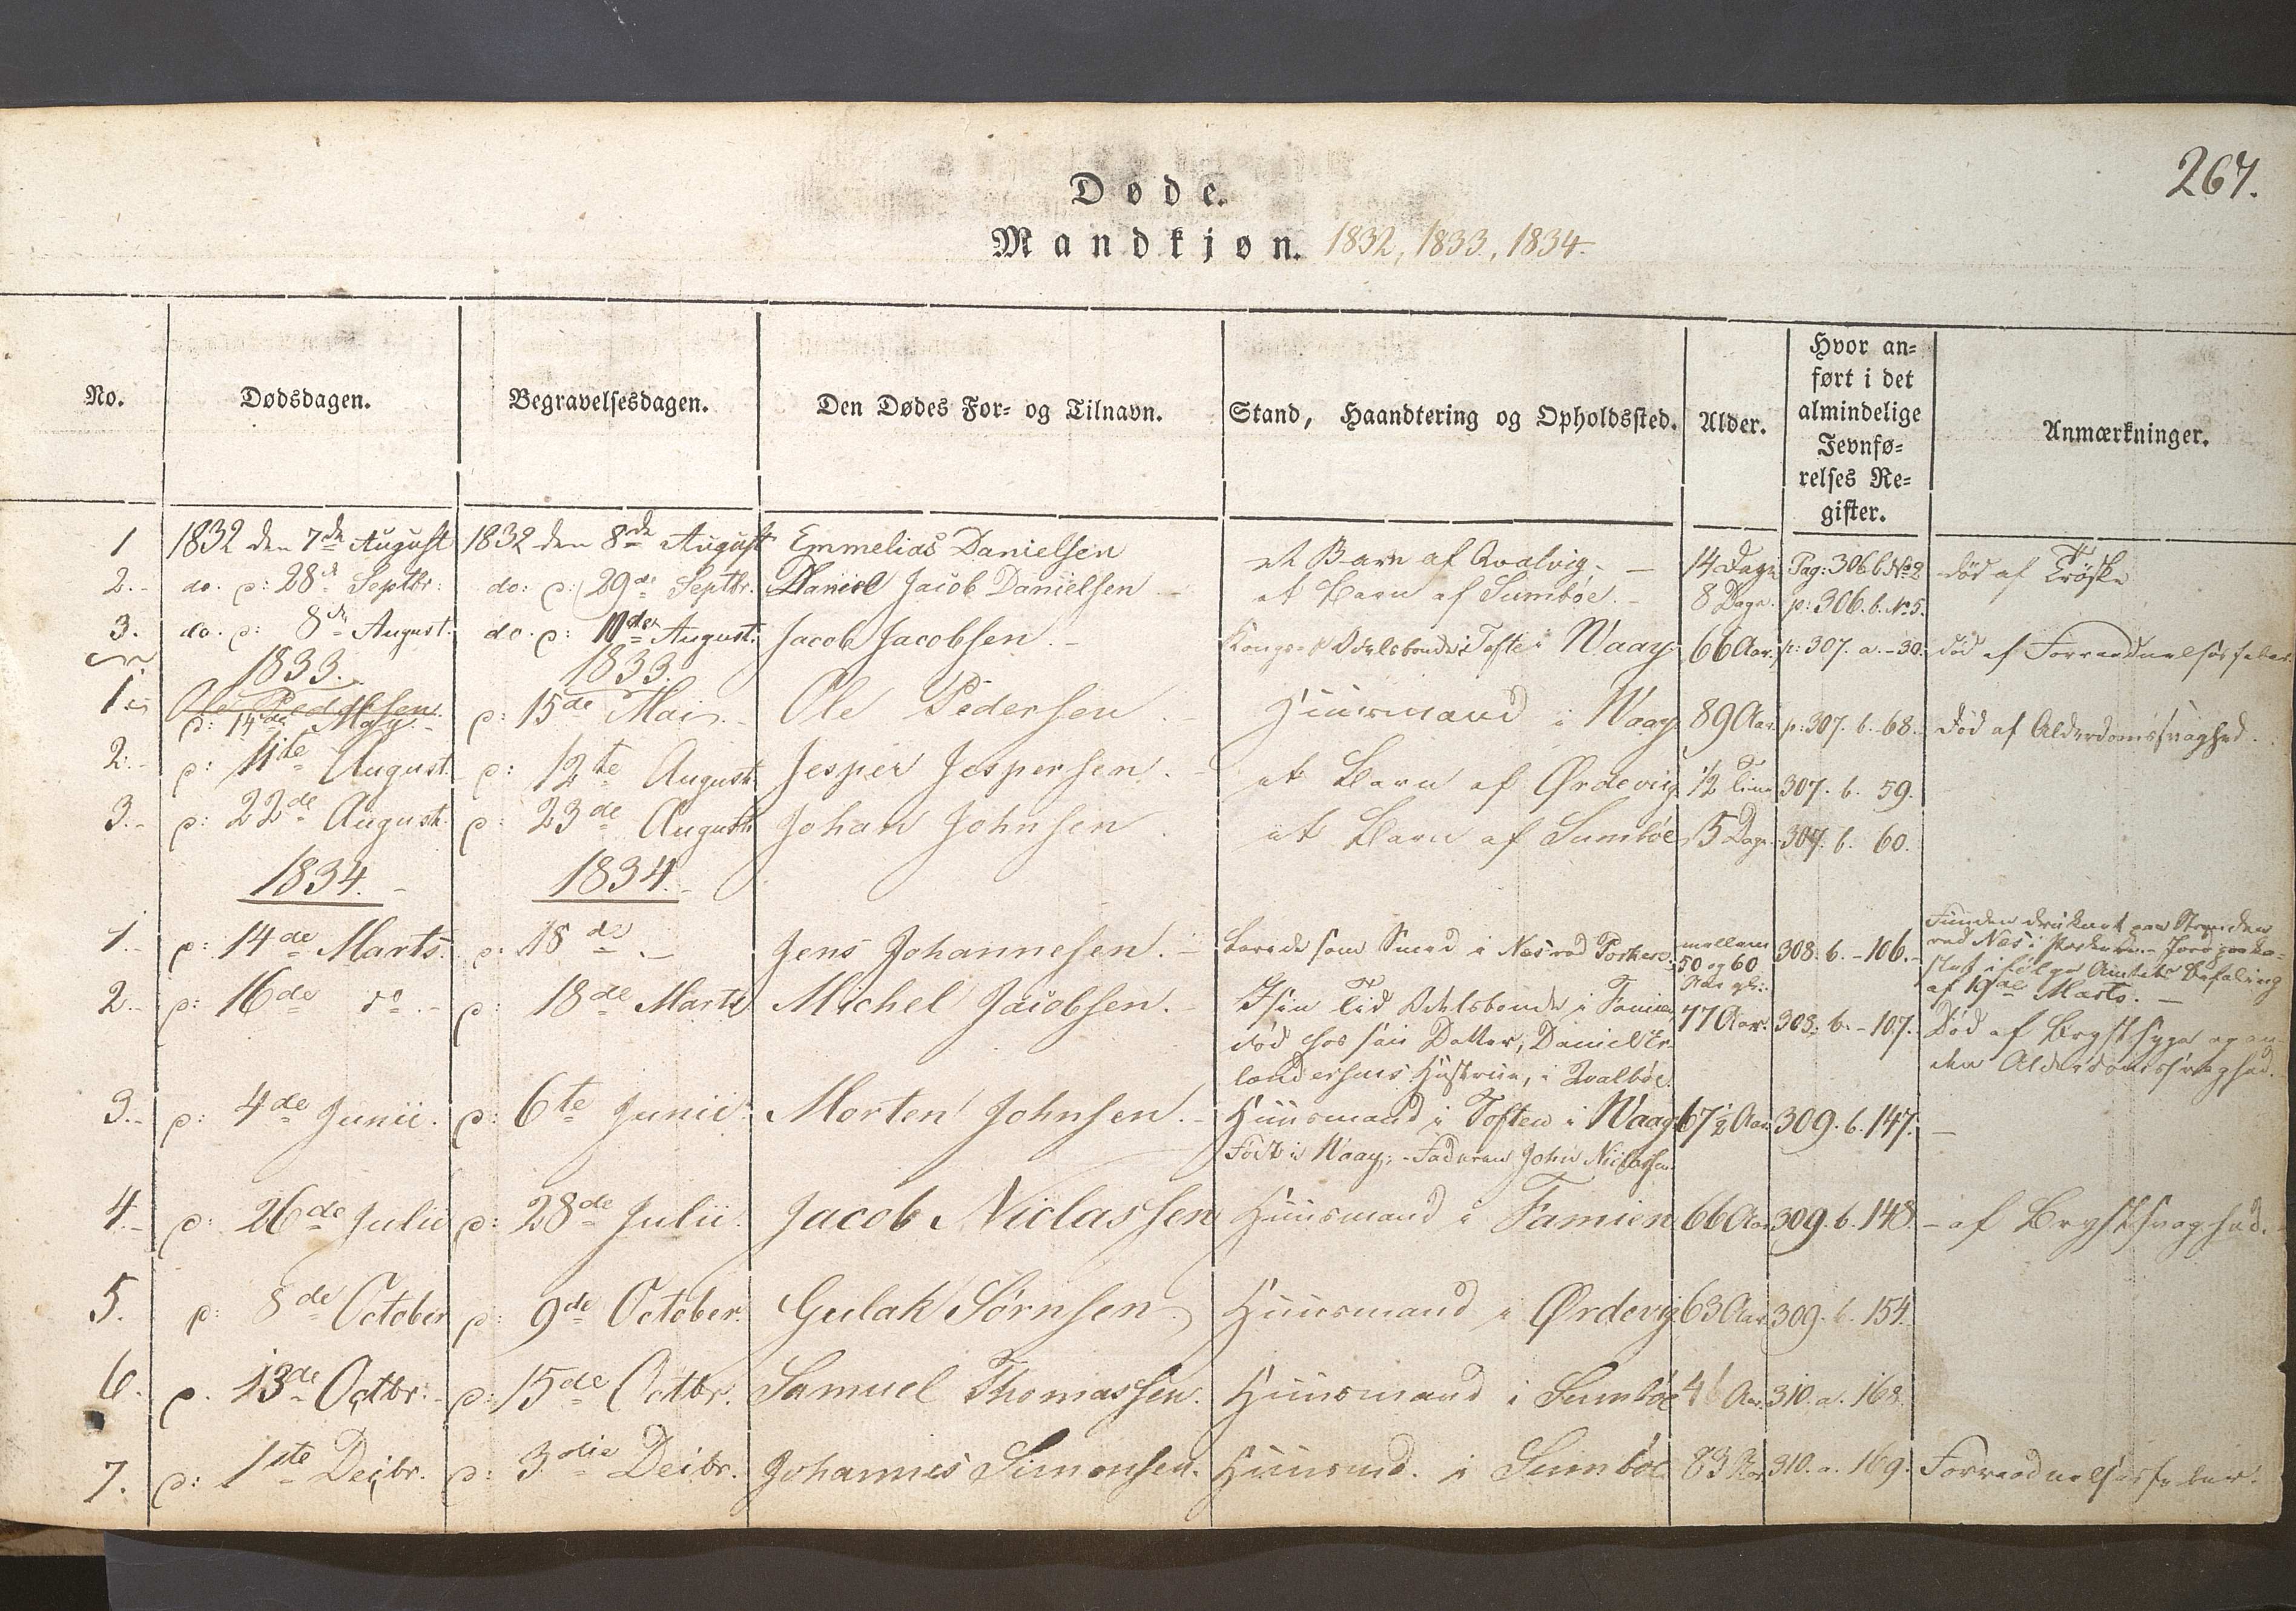 267.
Døde.
Mandkjøn. 1832, 1833, 1834.
No. Dødsdagen. Begravelsesdagen. Den Dødes For- og Tilnavn. Stand, Haandtering og Opholdssted. Alder. Hvor anført i det almindelige Jevnførelses Register. Anmærkninger.
1 1832 den 7de August 1832 den 8de August Emmelias Danielsen et Barn af Qvalvig. 14 Dage Pag: 306 b No 2 død af Trøske
2. do. d: 28de Septbr: do: d: 29de Septbr. Daniel Jacob Danielsen et Barn af Sumbøe. 8 Dage. p: 306. b. No 5.
3. do. d: 8de August. do. d: 10de August. Jacob Jacobsen. Konge- & Odelsbonde i Tofte i Waag 66 Aar. p: 307. a. - 30. død af Forraadnelsesfeber
1833. 1833.
1 Ole Pedersen
d: 14de May. d: 15de Mai Ole Pedersen Huusmand i Waag 89 Aar p: 307. b. 68. død af Alderdomssvaghed.
2. d: 11te August. d: 12te August Jesper Jespersen. et Barn af Ørdevig 1/2 Time 307. b. 59.
3. d: 22de August. d: 23de August Johan Johnsen et Barn af Sumbøe 5 Dage 307. b. 60.
1834. 1834.
1. d: 14de Marts. d: 18de Jens Johannesen. boede som Smed i Næs ved Porkere mellem 50 og 60 Aar 308. b. - 106. Funden druknet paa Stranden
ved Næs i
ifølge Amtets Befaling
af 17de Marts.
2. d: 16de do d: 18de Marts Michel Jacobsen. I sin Tid Odelsbonde i Famien, 77 Aar. 308. b. - 107. Død af Brystsyge og an-
død hos sin Datter, Daniel Er- den Alderdomssvaghed.
landersens Hustrue, i Qvalbøe.
3. d: 4de Junii. d: 6te Junii Morten Johnsen. Huusmand i Toften i Waag 67 1/2 Aar 309. b. 147.
Født i Waag; Faderen John Niclassen
4. d: 26de Julii d: 28de Julii. Jacob Niclassen Huusmand i Famien 66 Aar 309. b. 148. - af Brystsvaghed.
5. d: 8de October d: 9de October. Gulak Sørnsen Huusmand i Ørdevig 63 Aar 309. b. 154.
6. d. 13de Octbr: d: 15de Octbr. Samuel Thomassen. Huusmand i Sumbøe 46 Aar. 310. a. 168
7. d: 1ste Decbr. d: 3die Decbr. Johannes Simonsen. Huusmd. i Sumbøe 83 Aar 310. a. 169. Forraadnelsesfeber.